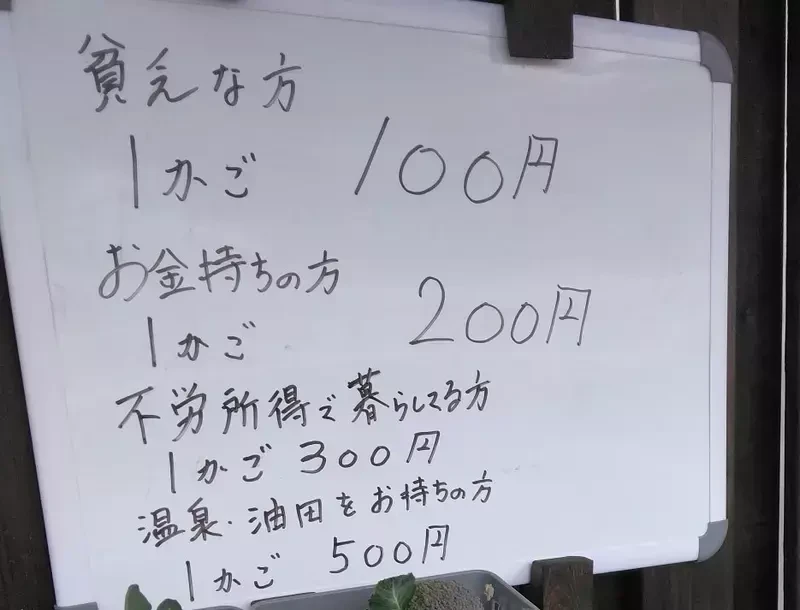 貧乏な方
1かご 100円
お金持ちの方
1かご 200円
不労所得で暮らしてる方
1かご 300円
温泉・油田をお持ちの方
1かご 500円